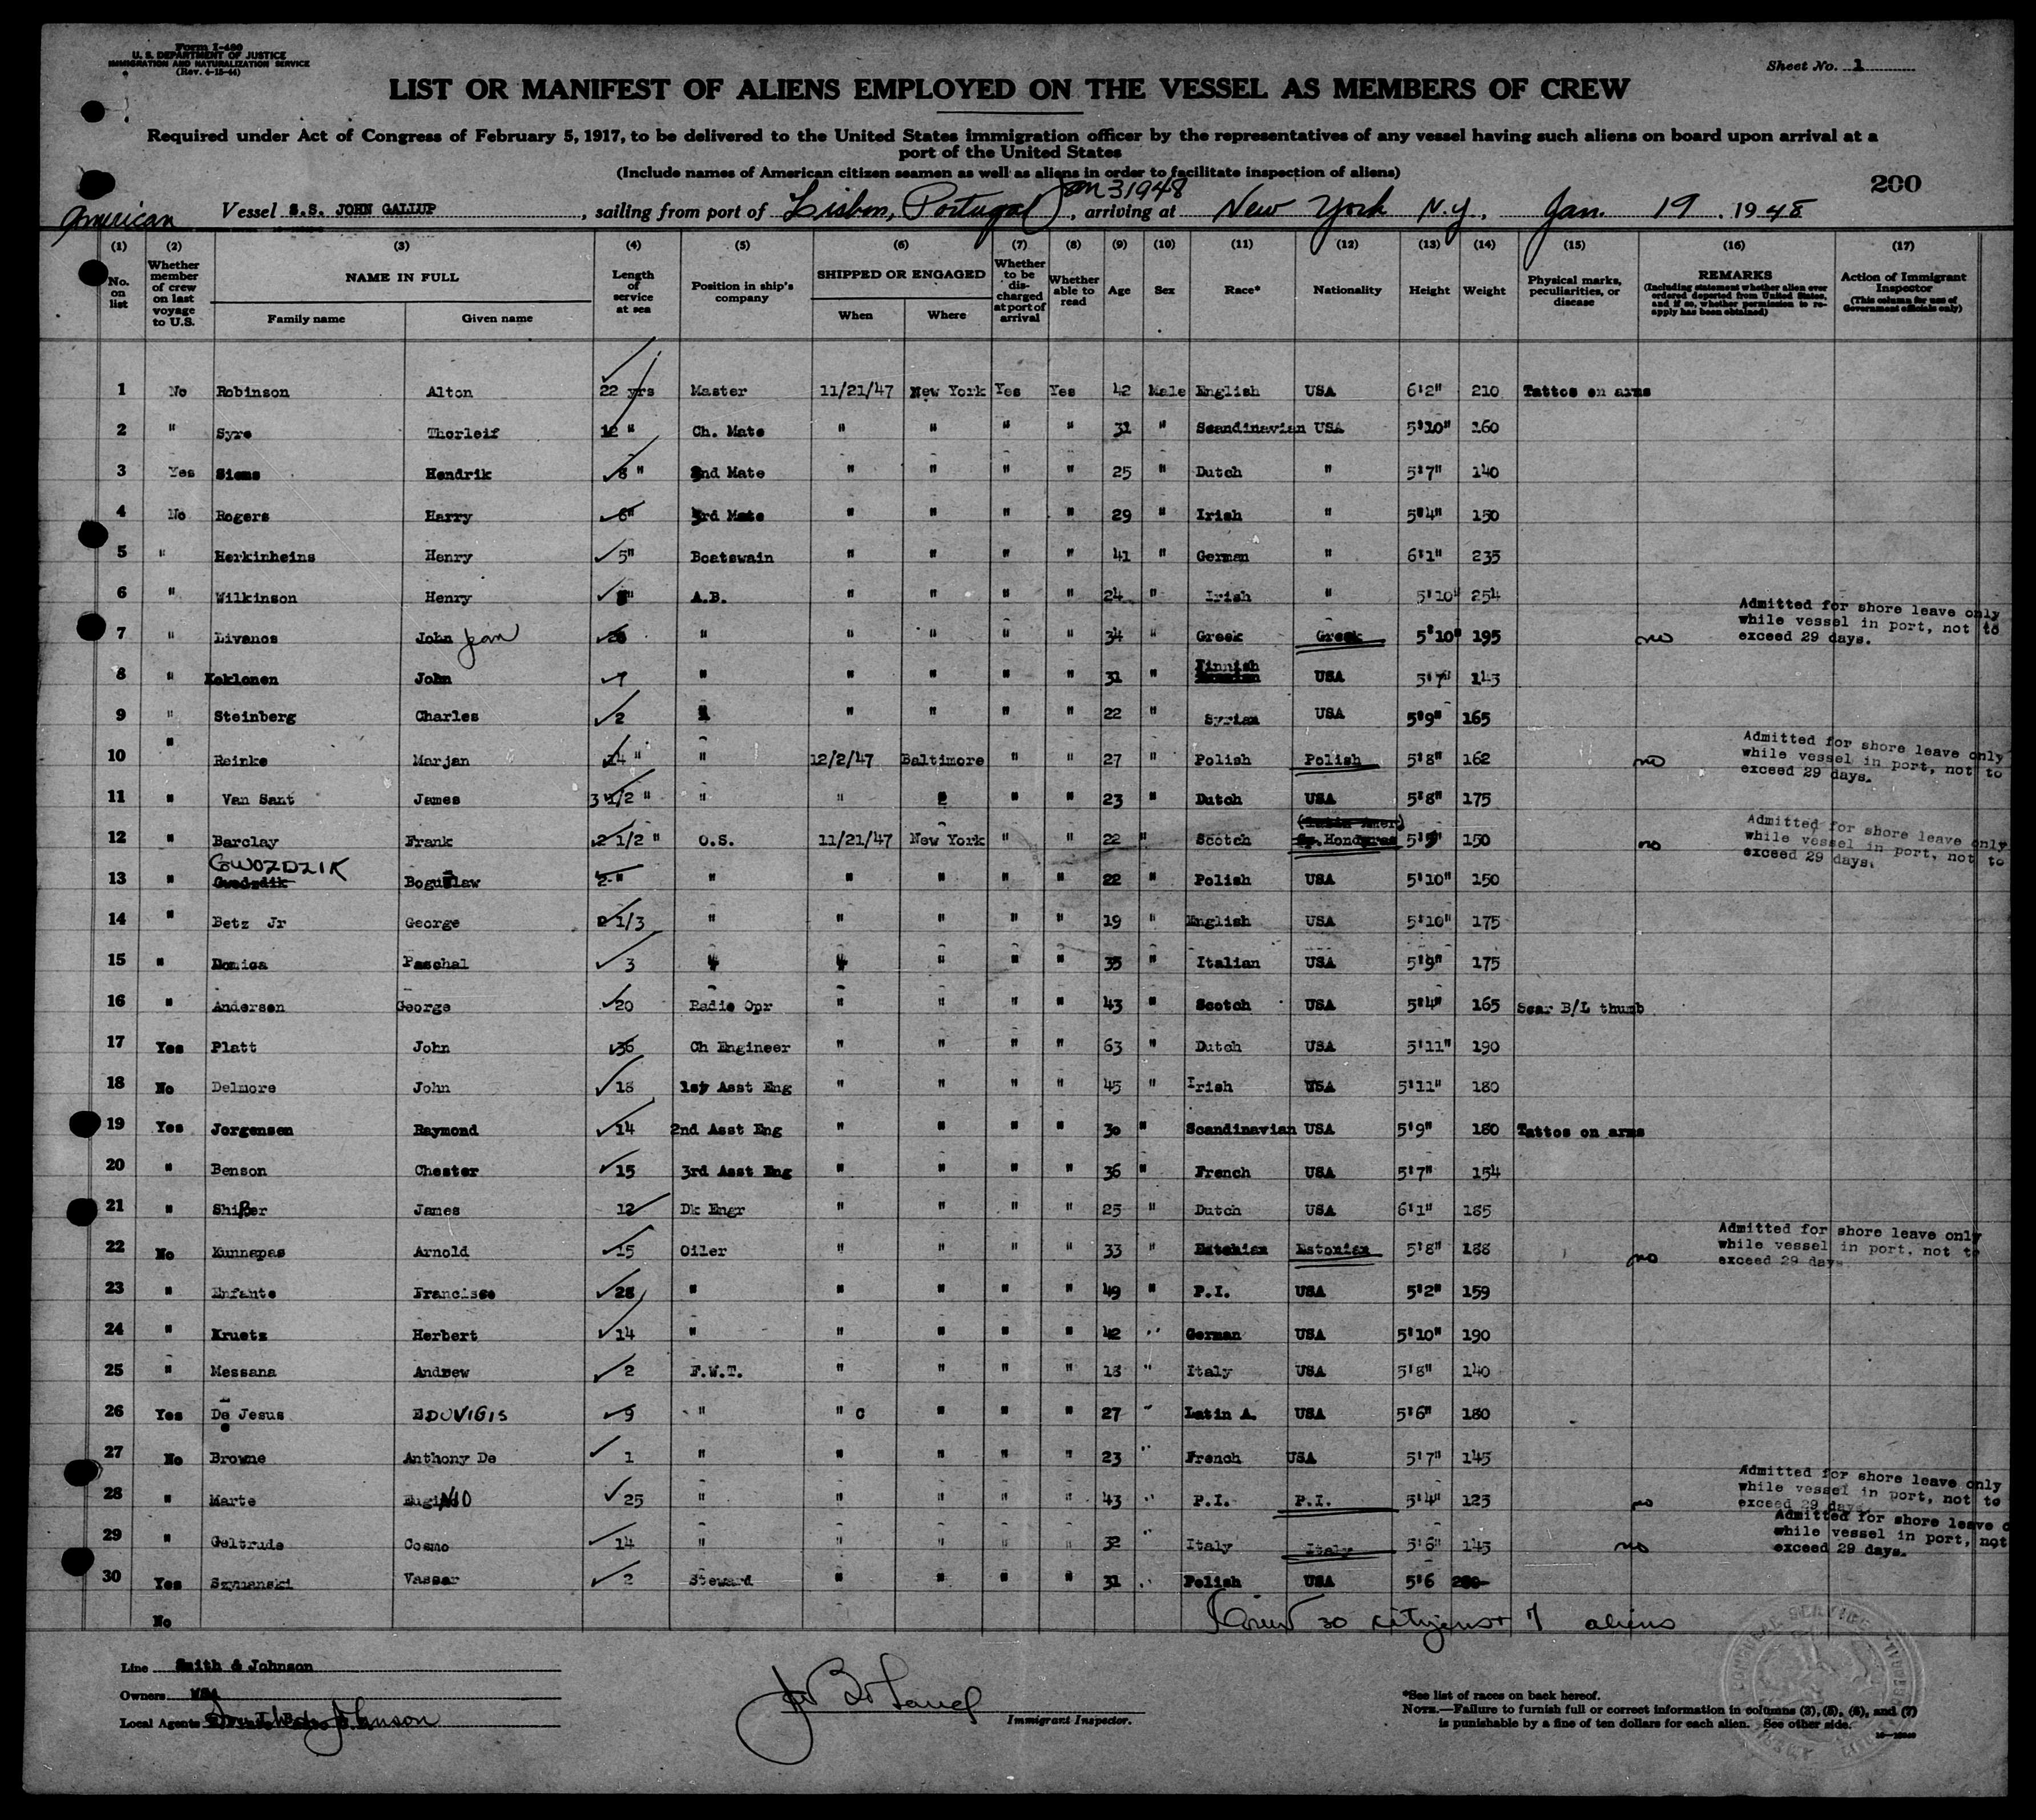 Form I-480
U. S. DEPARTMENT OF JUSTICE
IMMIGRATION AND NATURALIZATION SERVICE
(Rev. 4-15-44)
Sheet No. 1
LIST OR MANIFEST OF ALIENS EMPLOYED ON THE VESSEL AS MEMBERS OF CREW
Required under Act of Congress of February 5, 1917, to be delivered to the United States immigration officer by the representatives of any vessel having such aliens on board upon arrival at a
port of the United States
(Include names of American citizen seamen as well as aliens in order to facilitate inspection of aliens)
200
American Vessel S.S. JOHN GALLUP, sailing from port of Lisbon, Portugal Jan 3 1948, arriving at New York N.Y., Jan. 19, 1948
(1) (2) (3) (4) (5) (6) (7) (8) (9) (10) (11) (12) (13) (14) (15) (16) (17)
No. on list
Whether member of crew on last voyage to U.S.
NAME IN FULL
Family name Given name
Length of service at sea
Position in ship's company
SHIPPED OR ENGAGED
When Where
Whether to be discharged at port of arrival
Whether able to read
Age
Sex
Race*
Nationality
Height
Weight
Physical marks, peculiarities, or disease
REMARKS
(Including statement whether alien ever ordered deported from United States, and if so, whether permission to re-apply has been obtained)
Action of Immigrant Inspector
(This column for use of Government officials only)
1 No Robinson Alton 22 yrs Master 11/21/47 New York Yes Yes 42 Male English USA 6'2" 210 Tattos on arms
2 " Syre Thorleif 12 " Ch. Mate " " " " 31 " Scandinavian USA 5'10" 160
3 Yes Siems Hendrik 8 " 2nd Mate " " " " 25 " Dutch " 5'7" 140
4 No Rogers Harry 6" 3rd Mate " " " " 29 " Irish " 5'4" 150
5 " Herkinheins Henry 5" Boatswain " " " " 41 " German " 6'1" 235
6 " Wilkinson Henry " A.B. " " " " 24 " Irish " 5'10" 254
7 " Livanos John Jean " " " " " 34 " Greek Greek 5'10" 195 no Admitted for shore leave only while vessel in port, not to exceed 29 days.
8 " Koklonen John 7 " " " " " 31 " Finnish USA 5'7" 143
9 " Steinberg Charles 2 " " " " 22 " Syrian USA 5'9" 165
10 " Reinke Marjan 14 " " 12/2/47 Baltimore " " 27 " Polish Polish 5'8" 162 no Admitted for shore leave only while vessel in port, not to exceed 29 days.
11 " Van Sant James 3 1/2 " " " " " 23 " Dutch USA 5'8" 175
12 " Barclay Frank 2 1/2 " O.S. 11/21/47 New York " " 22 " Scotch (Latin Amer) Sp. Honduras 5'9" 150 no Admitted for shore leave only while vessel in port, not to exceed 29 days.
13 " GWOZDZIK Gwodzdik Boguslaw 2 " " " " " " 22 " Polish USA 5'10" 150
14 " Betz Jr George 2 1/3 " " " " " 19 " English USA 5'10" 175
15 " Domica Paschal 3 " " " " " 35 " Italian USA 5'9" 175
16 " Anderson George 20 Radio Opr " " " " 43 " Scotch USA 5'4" 165 Scar B/L thumb
17 Yes Platt John 36 Ch Engineer " " " " 63 " Dutch USA 5'11" 190
18 No Delmore John 18 1st Asst Eng " " " " 45 " Irish USA 5'11" 180
19 Yes Jorgensen Raymond 14 2nd Asst Eng " " " " 30 " Scandinavian USA 5'9" 180 Tattos on arms
20 " Benson Chester 15 3rd Asst Eng " " " " 36 " French USA 5'7" 154
21 " James 12 Dk Engr " " " " 25 " Dutch USA 6'1" 185
22 No Kunnapas Arnold 15 Oiler " " " " 33 " Estonian 5'8" 188 no Admitted for shore leave only while vessel in port, not to exceed 29 days
23 " Enfante Francisco 28 " " " " " 49 " P.I. USA 5'2" 159
24 " Kruetz Herbert 14 " " " " " 42 " German USA 5'10" 190
25 " Messana Andrew 2 F.W.T. " " " " 18 " Italy USA 5'8" 140
26 Yes De Jesus EDUVIGIS 9 " " " " " 27 " Latin A. USA 5'6" 180
27 No Browne Anthony De 1 " " " " " 23 " French USA 5'7" 145
28 " Marte 25 " " " " " 43 " P.I. P.I. 5'4" 125 no Admitted for shore leave only while vessel in port, not to exceed 29 days.
29 " Geltrude Cosmo 14 " " " " " 32 " Italy Italy 5'6" 145 no Admitted for shore leave while vessel in port, not exceed 29 days.
30 Yes Szymanski Vassar 2 Steward " " " " 31 " Polish USA 5'6
No
30 citizens + 7 aliens
Line Smith & Johnson
Owners WSA
Local Agents Smith & Johnson
Immigrant Inspector.
*See list of races on back hereof.
NOTE.—Failure to furnish full or correct information in columns (3), (5), (6), and (7)
is punishable by a fine of ten dollars for each alien. See other side.